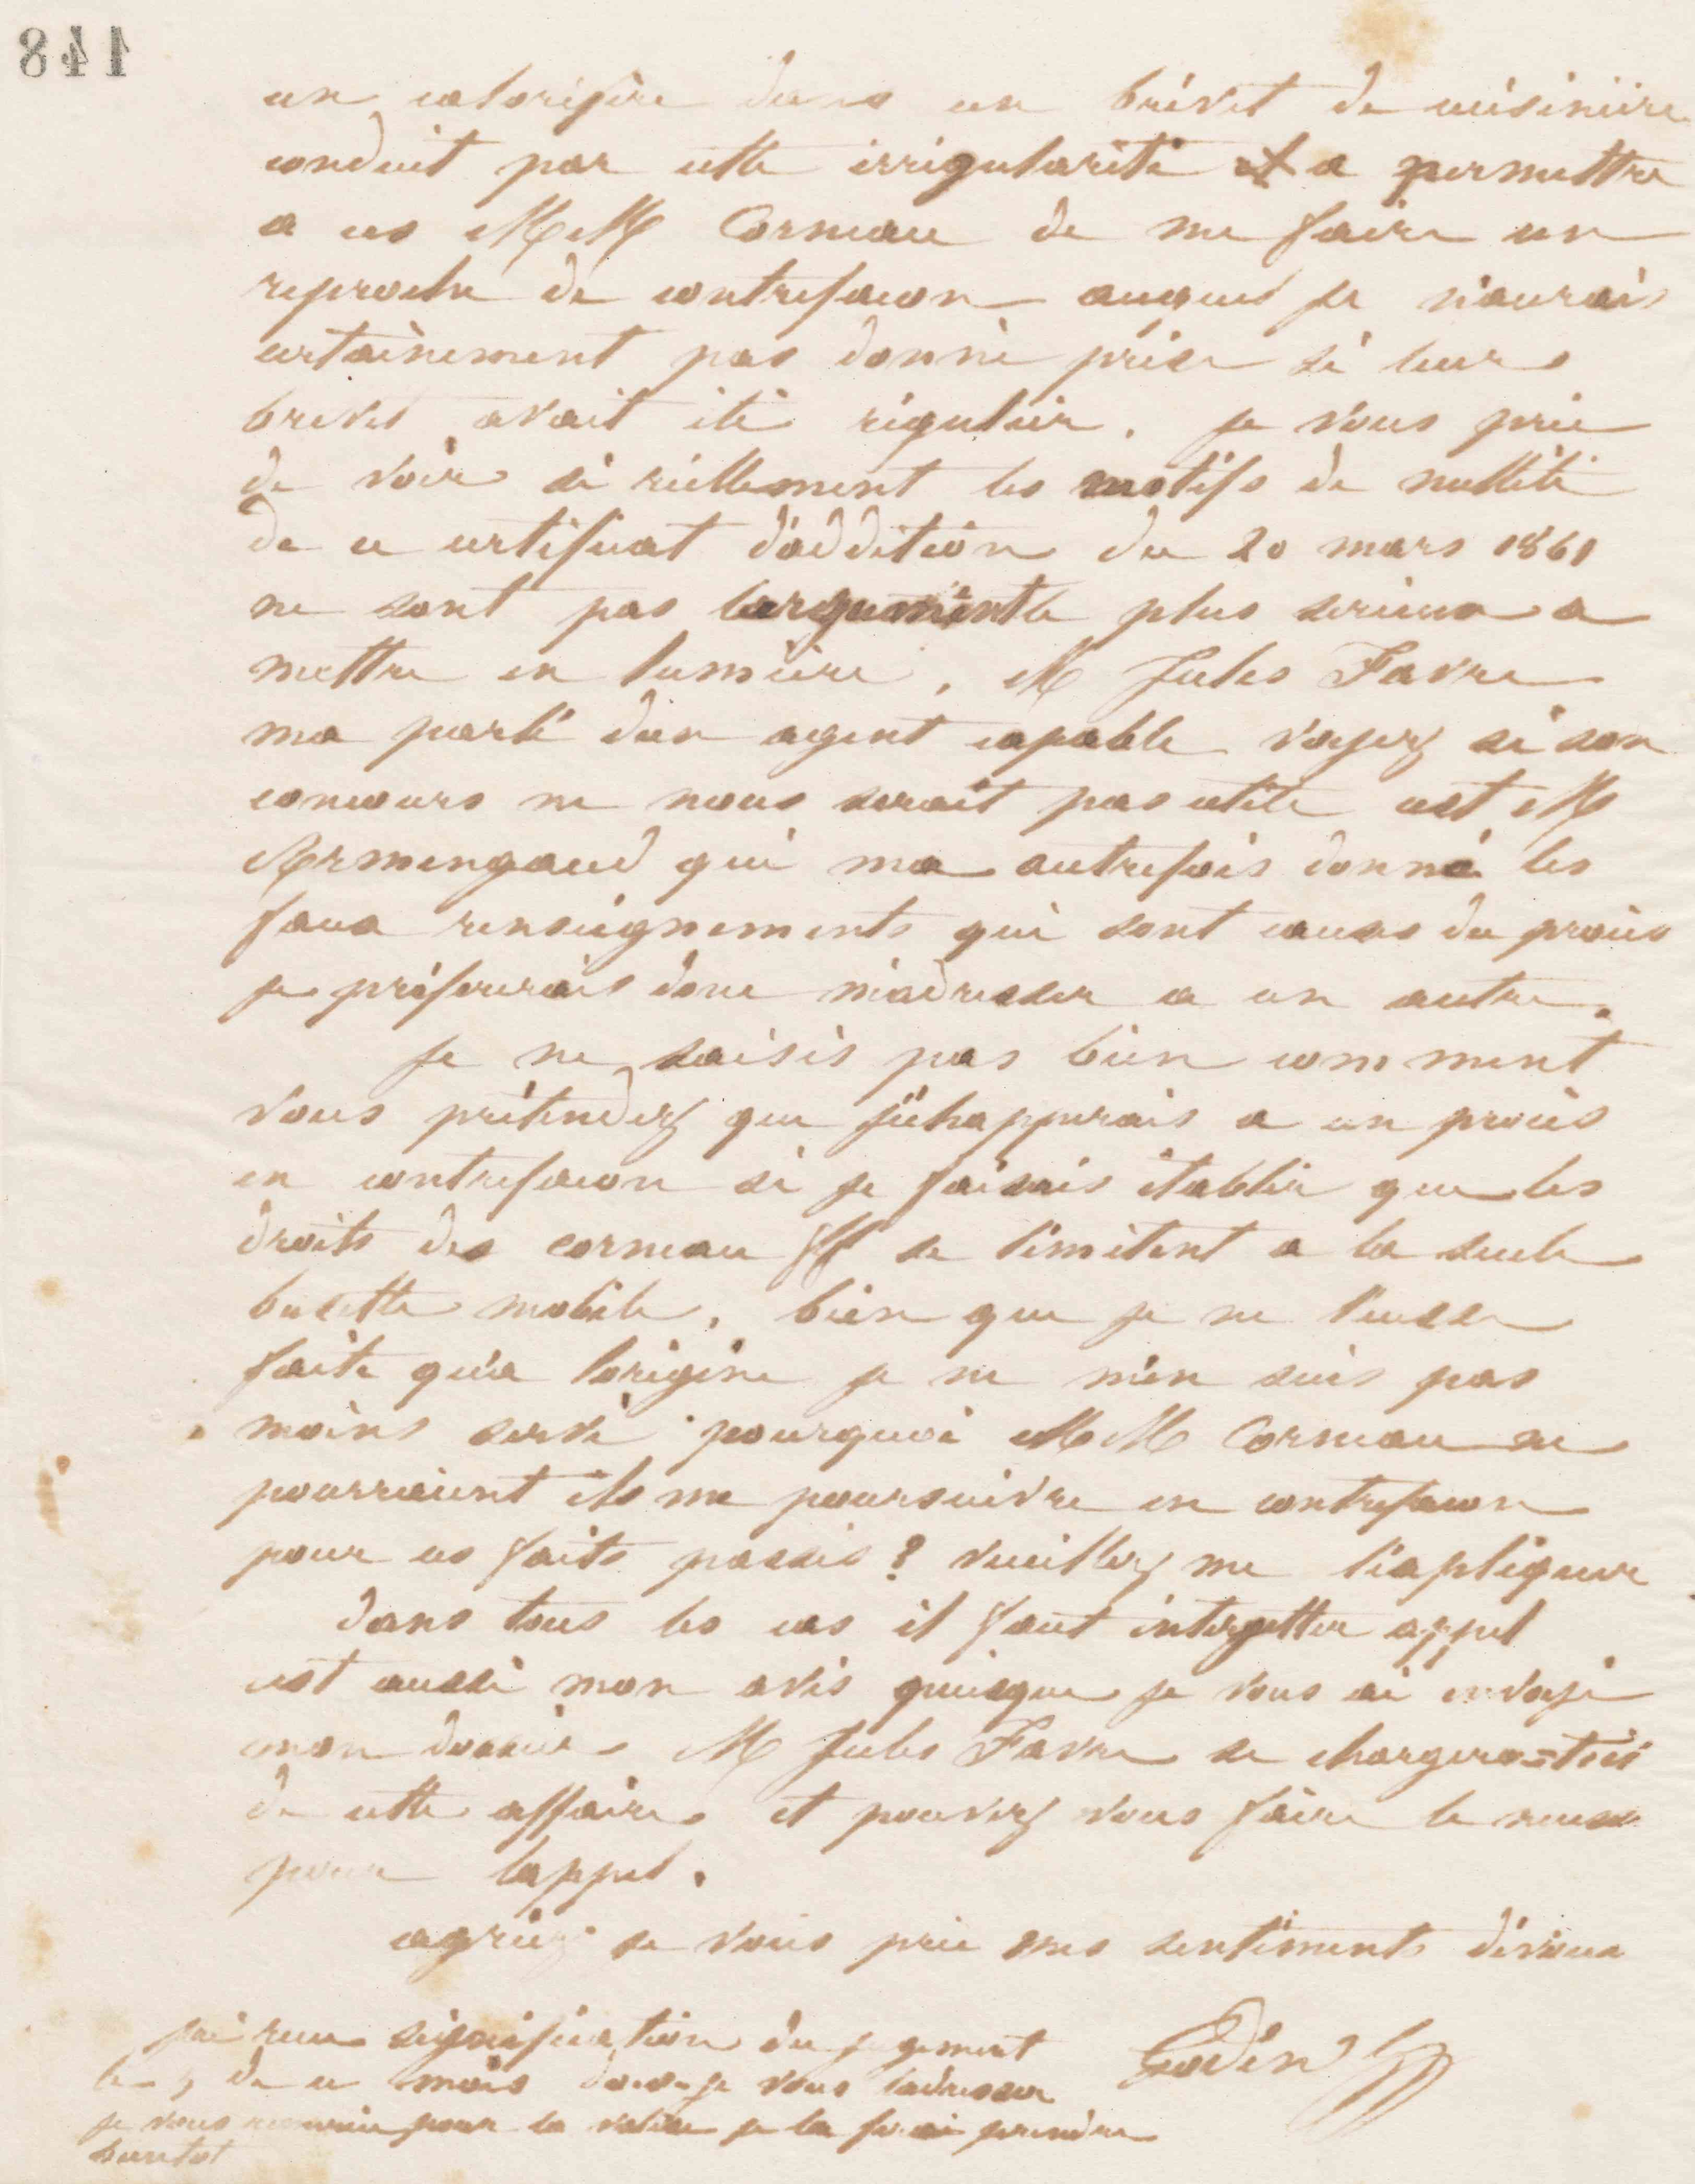 148
un calorifère dans un brévet de cuisinière
conduit par cette irrigularité a permettre
a ces MM Corneau de me faire un
reproche de contrefacon auquel je n'aurais
certainement pas donné prise si leurs
brevet avait été régulier. je vous prie
de voir si réellement les motifs de nullité
de ce certificat d'addition du 20 mars 1861
ne sont pas largument le plus serieux a
mettre en lumière. M Jules Favre
ma parlé d'un agent capable voyez si son
concours ne nous serait pas utile cest M
Armengaud qui ma autrefois donné les
faux renseignements qui sont causes du procès
je préfererais donc m'adresser a un autre.
je ne saisis pas bien comment
vous prétendez que j'échapperais a un procès
en contrefacon si je faisais établir que les
droits des corneau ff se limitent a la seule
busette mobile. bien que je ne l'eusse
faite qu'a lorigine je ne m'en suis pas
moins servi pourquoi MM Corneau ne
pourraient ils me poursuivre en contrefacon
pour ces faits passés? veuillez me l'expliquer
dans tous les cas il faut interjetter appel
cest aussi mon avis puisque je vous ai envoyé
mon dossier M Jules Favre se chargera-t-il
de cette affaire et pouvez vous faire le
pour lappel.
agréez je vous prie mes sentiments dévoués
Godin
jai recu signification du jugement
le de ce mois dois-je vous ladresser
je vous remercie pour la valise je la ferai prendre
bientot